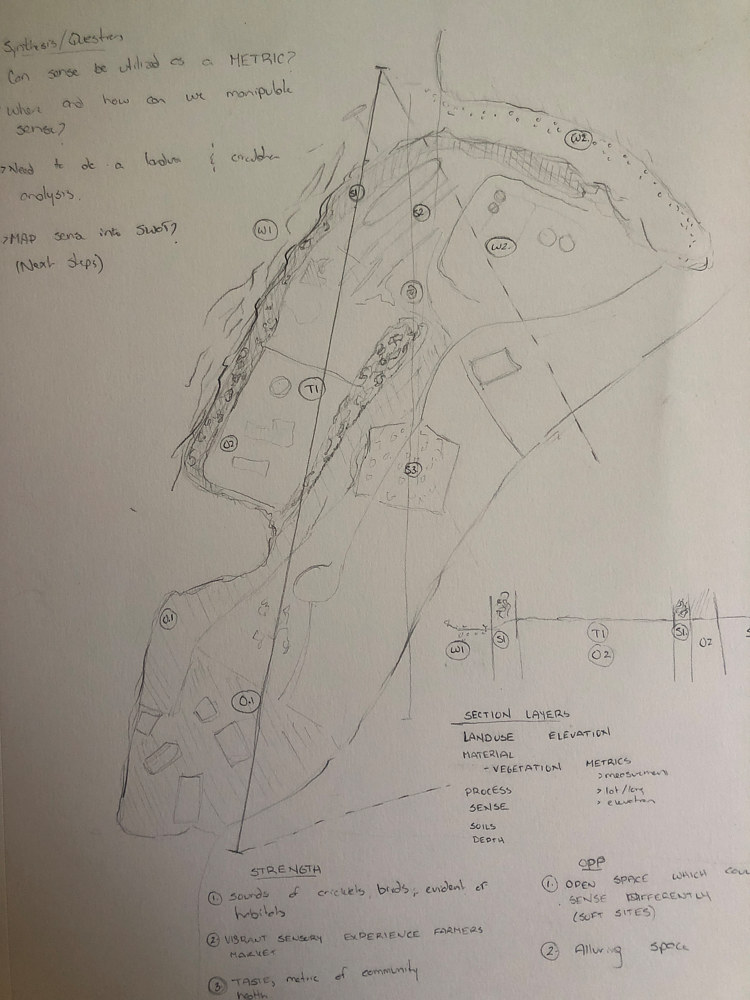 Synthesis/Question
Can sense be utilized as a METRIC?
Where and how can we manipulate
sense?
>Need to do a & circulation
analysis.
>MAP sense into SWOT?
(Next steps)
W2
S1
S2
W1
W2
T1
O2
S3
O.1
O.1
S1
S1
W1
T1
O2
O2
SECTION LAYERS
LANDUSE ELEVATION
MATERIAL
- VEGETATION METRICS
> measurement
PROCESS > lat/long
SENSE > elevation
SOILS
DEPTH
STRENGTH
1. Sounds of crickets, birds, evident of
habitats
2. VIBRANT SENSORY EXPERIENCE FARMERS
MARKET
3. TASTE, metric of community
health
OPP
1. OPEN SPACE WHICH COUL
SENSE DIFFERENTLY
(SOFT SITES)
2. Alluring space